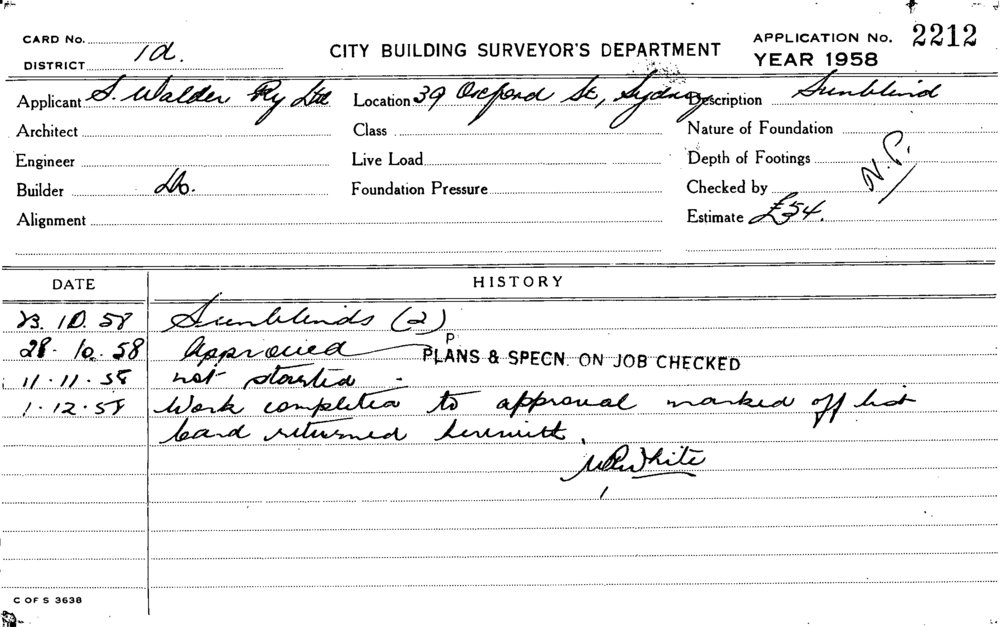 CARD No.
DISTRICT 1d.
CITY BUILDING SURVEYOR'S DEPARTMENT
APPLICATION No. 2212
YEAR 1958
Applicant S. Walder Pty Ltd Location 39 Oxford St, Sydney Description Sunblind
Architect Class Nature of Foundation
Engineer Live Load Depth of Footings
Builder Do. Foundation Pressure Checked by N.P.
Alignment Estimate £54.
DATE HISTORY
23.10.58 Sunblinds (2)
28.10.58 Approved P PLANS & SPECN. ON JOB CHECKED
11.11.58 not started -
1.12.58 Work completed to approval marked off list
card returned herewith.
White
C OF S 3638